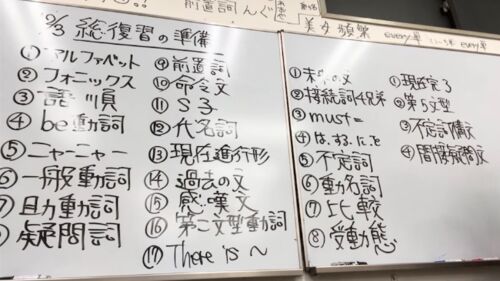 総復習の準備
① アルファベット
② フォニックス
③ 語順
④ be動詞
⑤ ニャーニャー
⑥ 一般動詞
⑦ 助動詞
⑧ 疑問詞
⑨ 前置詞
⑩ 命令文
⑪ S3
⑫ 代名詞
⑬ 現在進行形
⑭ 過去の文
⑮ 感嘆文
⑯ 第二文型動詞
⑰ There is ~
① 未来の文
② 接続詞4兄弟
③ must=
④ は、する、こと
⑤ 不定詞
⑥ 動名詞
⑦ 比較
⑧ 受動態
① 現在完了
② 第5文型
③ 不定詞構文
④ 間接疑問文